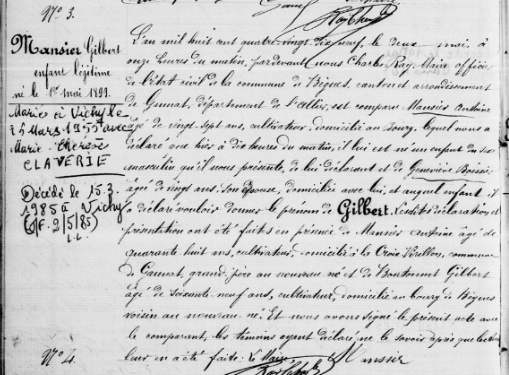 N° 3.
Mansier Gilbert
enfant légitime
né le 1er mai 1899.
Marié à Vichy le
25 Mars 1955 avec
Marie Thérèse
CLAVERIE
Décédé le 15.3.
1985 à Vichy
L'an mil huit cent quatre-vingt dix neuf, le deux mai, à
onze heures du matin, pardevant nous Charles Roy, Maire officier
de l'état civil de la commune de Bègues, canton et arrondissement
de Gannat, département de l'Allier, est comparu Mansier Antoine
âgé de vingt sept ans, cultivateur, domicilié au bourg. Lequel nous a
déclaré que hier à dix heures du matin, il lui est né un enfant du sexe
masculin qu'il nous présente, de lui déclarant et de Geneviève
âgée de vingt ans, son épouse, domiciliée avec lui, et auquel enfant il
a déclaré vouloir donner le prénom de Gilbert. Lesdites déclaration et
présentation ont été faites en présence de Mansier Antoine âgé de
quarante huit ans, cultivateur, domicilié à la Croix commune
de Gannat, grand père au nouveau né et de Gilbert
âgé de soixante neuf ans, cultivateur, domicilié au bourg de Bègues
voisin au nouveau né. Et nous avons signé le présent acte avec
le comparant, les témoins ayant déclaré ne le savoir après que lecture
leur en a été faite. Le Maire Mansier
N° 4.